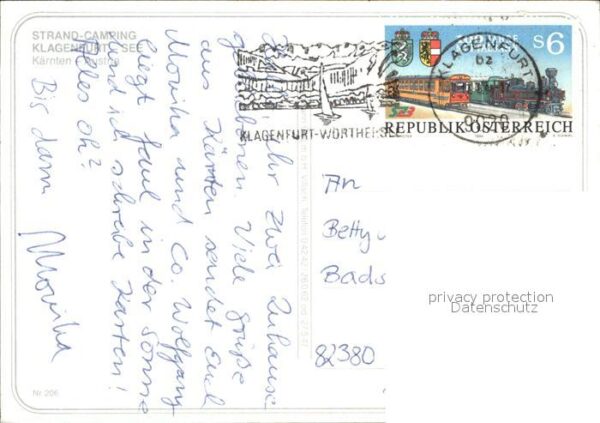 STRAND-CAMPING
KLAGENFURT SEE
Kärnten - Austria
Ihr zwei Zuhause
gebliebenen. Viele Grüße
aus Kärnten sendet Euch
Monika und Co. Wolfgang
liegt faul in der Sonne
und ich schreibe Karten!
Alles ok?
Bis dann
Monika
Nr. 206
KLAGENFURT-WÖRTHERS
KLAGENFURT
bz
9020
S6
REPUBLIK ÖSTERREICH
An
Betty
Bads
82380
privacy protection
Datenschutz